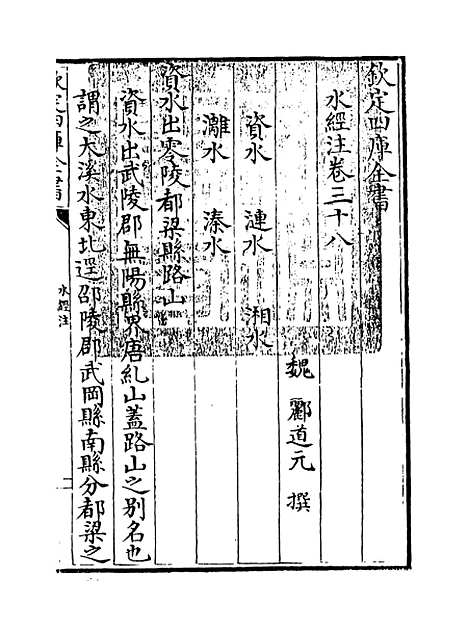 欽定四庫全書
水經注卷三十八
魏 酈道元 撰
資水 漣水 湘水
灕水 溱水
資水出零陵都梁縣路山
資水出武陵郡無陽縣界唐糺山蓋路山之别名也
謂之大溪水東北逕邵陵郡武岡縣南縣分都梁之
欽定四庫全書
水經注
一